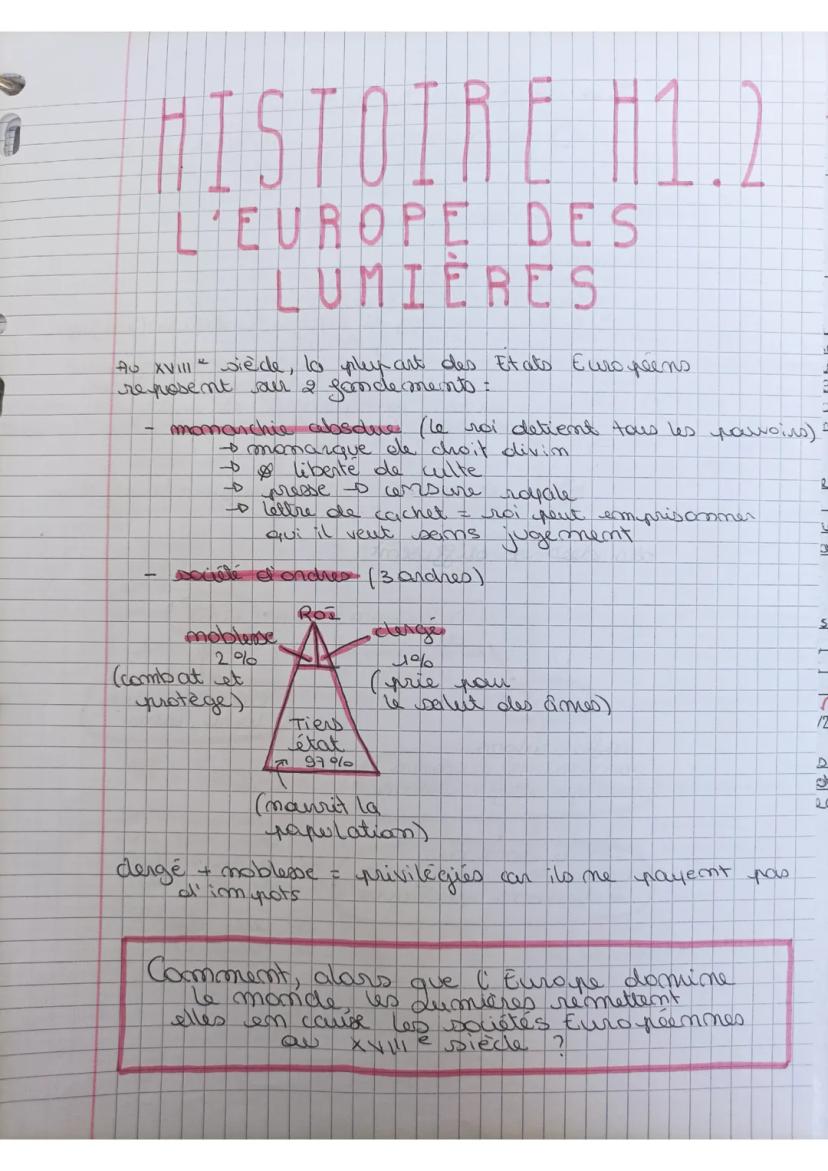 HISTOIRE H1.2
L'EUROPE DES
LUMIÈRES
Au XVIIIe siècle, la plupart des États Européens
reposent sur 2 fondements :
- monarchie absolue (le roi détient tous les pouvoirs)
→ monarque de droit divin
→ Ø liberté de culte
→ presse → censure royale
→ lettre de cachet = roi peut emprisonner
qui il veut sans jugement
- société d'ordres (3 ordres)
ROI
noblesse
2%
(combat et
protège)
clergé
1%
(prie pour
le salut des âmes)
Tiers
état
97%
(nourrit la
population)
clergé + noblesse = privilégiés car ils ne payent pas
d'impots
Comment, alors que l'Europe domine
le monde, les Lumières remettent
elles en cause les sociétés Européennes
au XVIIIe siècle ?